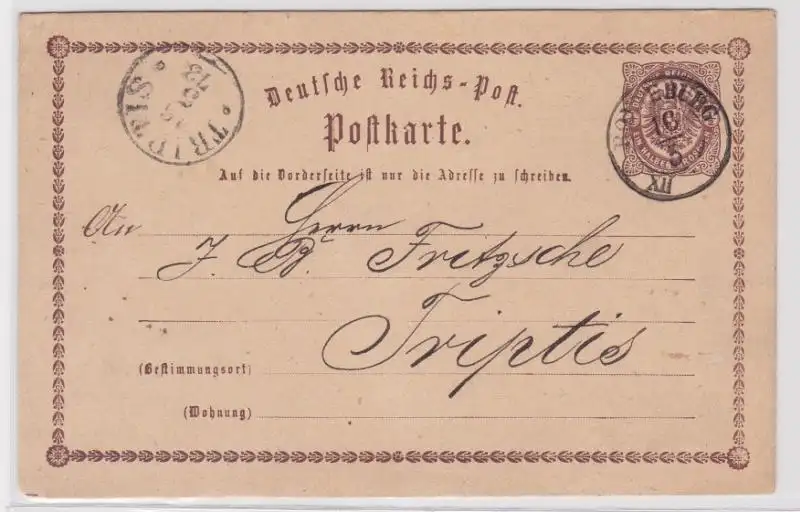 Deutsche Reichs-Post.
Postkarte.
Auf die Vorderseite ist nur die Adresse zu schreiben.
An Herrn
J. B. Fritzsche
Triptis
(Bestimmungsort)
(Wohnung)
TRIPTIS
16
5
XII